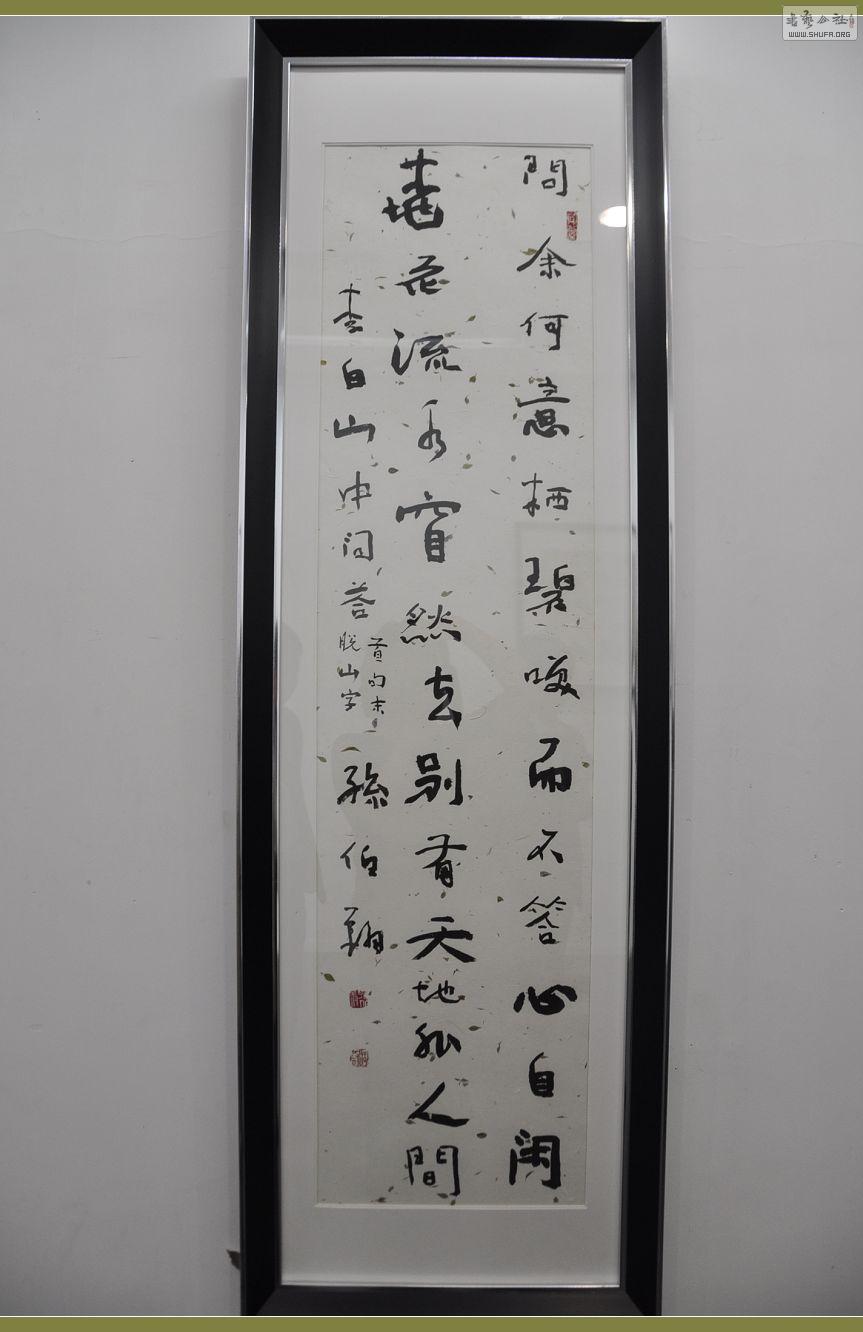 問余何意栖碧咲而不答心自闲
花流水窅然去别有天地非人間
李白山中问答
首句末
脱山字
孫伯翔
书艺公社
WWW.SHUFA.ORG